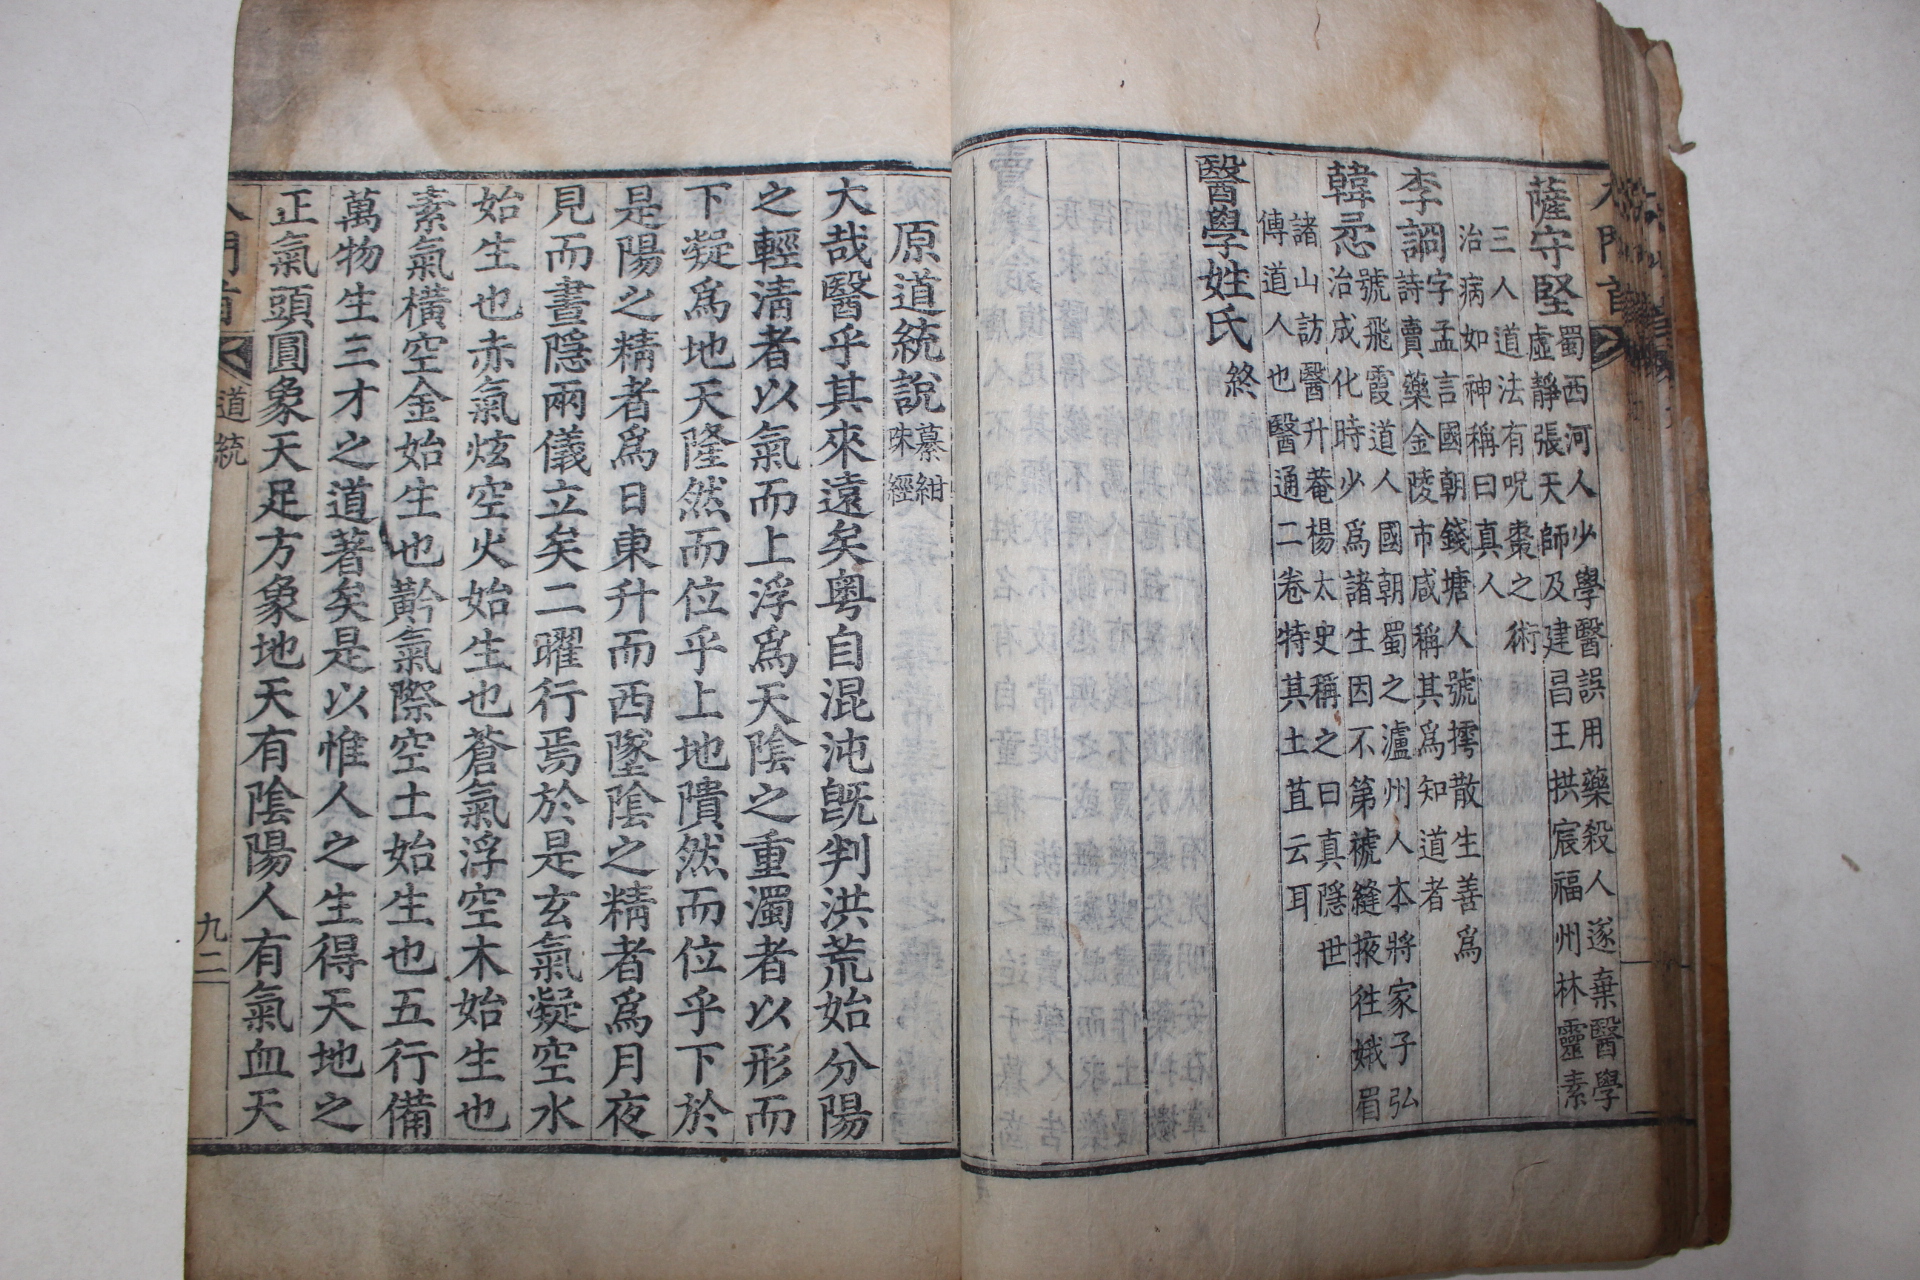 薩守堅 蜀西河人少學醫誤用藥殺人遂棄醫學
虛靜張天師及建昌王拱宸福州林靈素
三人道法有呪棗之術
治病如神稱曰真人
李詷 字孟言國朝錢塘人號樗散生善爲
詩賣藥金陵市咸稱其爲知道者
韓㤓 號飛霞道人國朝蜀之瀘州人本將家子弘
治成化時少爲諸生因不第褫縫掖徃娥眉
諸山訪醫升菴楊太史稱之曰真隱世
傳道人也醫通二卷特其土苴云耳
醫學姓氏 終
原道統說 纂紺
珠經
大哉醫乎其來遠矣粤自混沌旣判洪荒始分陽
之輕清者以氣而上浮爲天陰之重濁者以形而
下凝爲地天隆然而位乎上地隤然而位乎下於
是陽之精者爲日東升而西墜陰之精者爲月夜
見而晝隱兩儀立矣二曜行焉於是玄氣凝空水
始生也赤氣炫空火始生也蒼氣浮空木始生也
素氣橫空金始生也黅氣際空土始生也五行備
萬物生三才之道著矣是以惟人之生得天地之
正氣頭圓象天足方象地天有陰陽人有氣血天
入門首 道統 九二